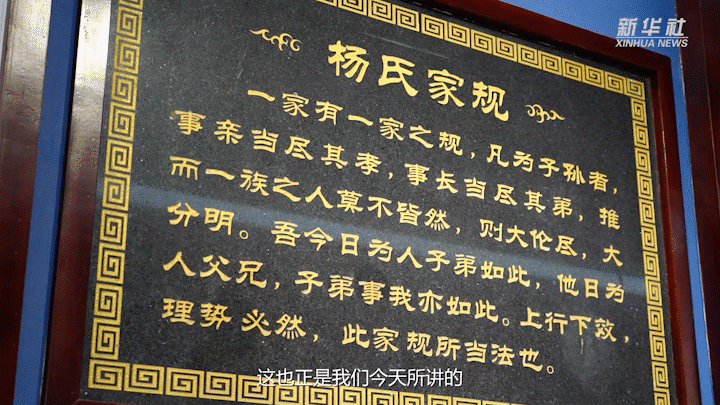 新华社
XINHUA NEWS
杨氏家规
一家有一家之规，凡为子孙者，
事亲当尽其孝，事长当尽其弟，推
而一族之人莫不皆然，则大伦尽，大
分明。吾今日为人子弟如此，他日为
人父兄，子弟事我亦如此。上行下效，
理势必然，此家规所当法也。
这也正是我们今天所讲的